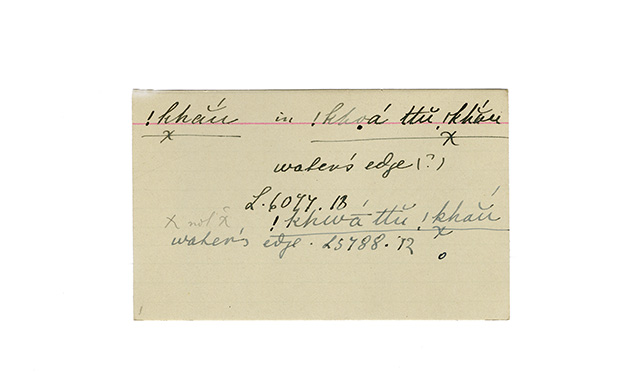 !kháŭ in !khọá ttŭ !kháŭ
x x
water's edge (?)
L. 6077. 13
x not x̆ !khwá ttŭ !kháŭ
water's edge. L5788. '12 x
o